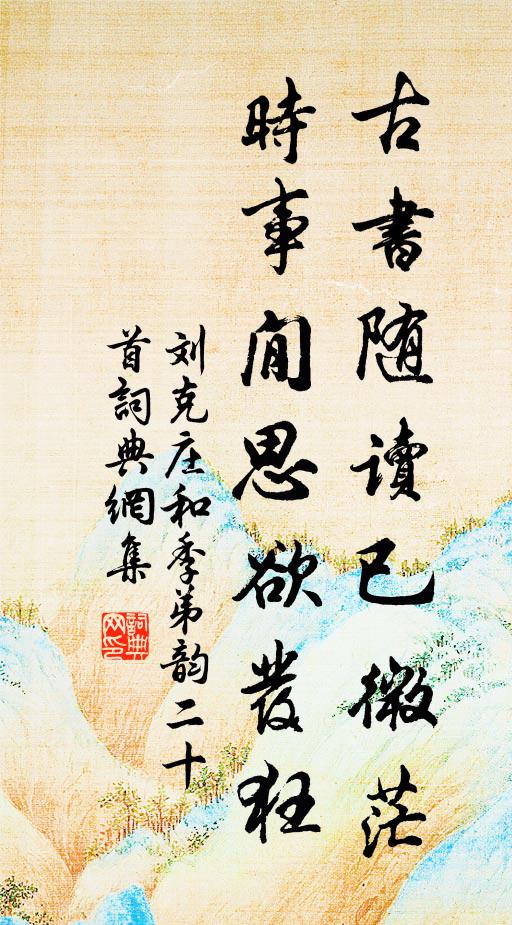 古書随讀已微茫
時事閒思欲發狂
刘克庄和季弟韵二十
首詞典網集
詞典
网印